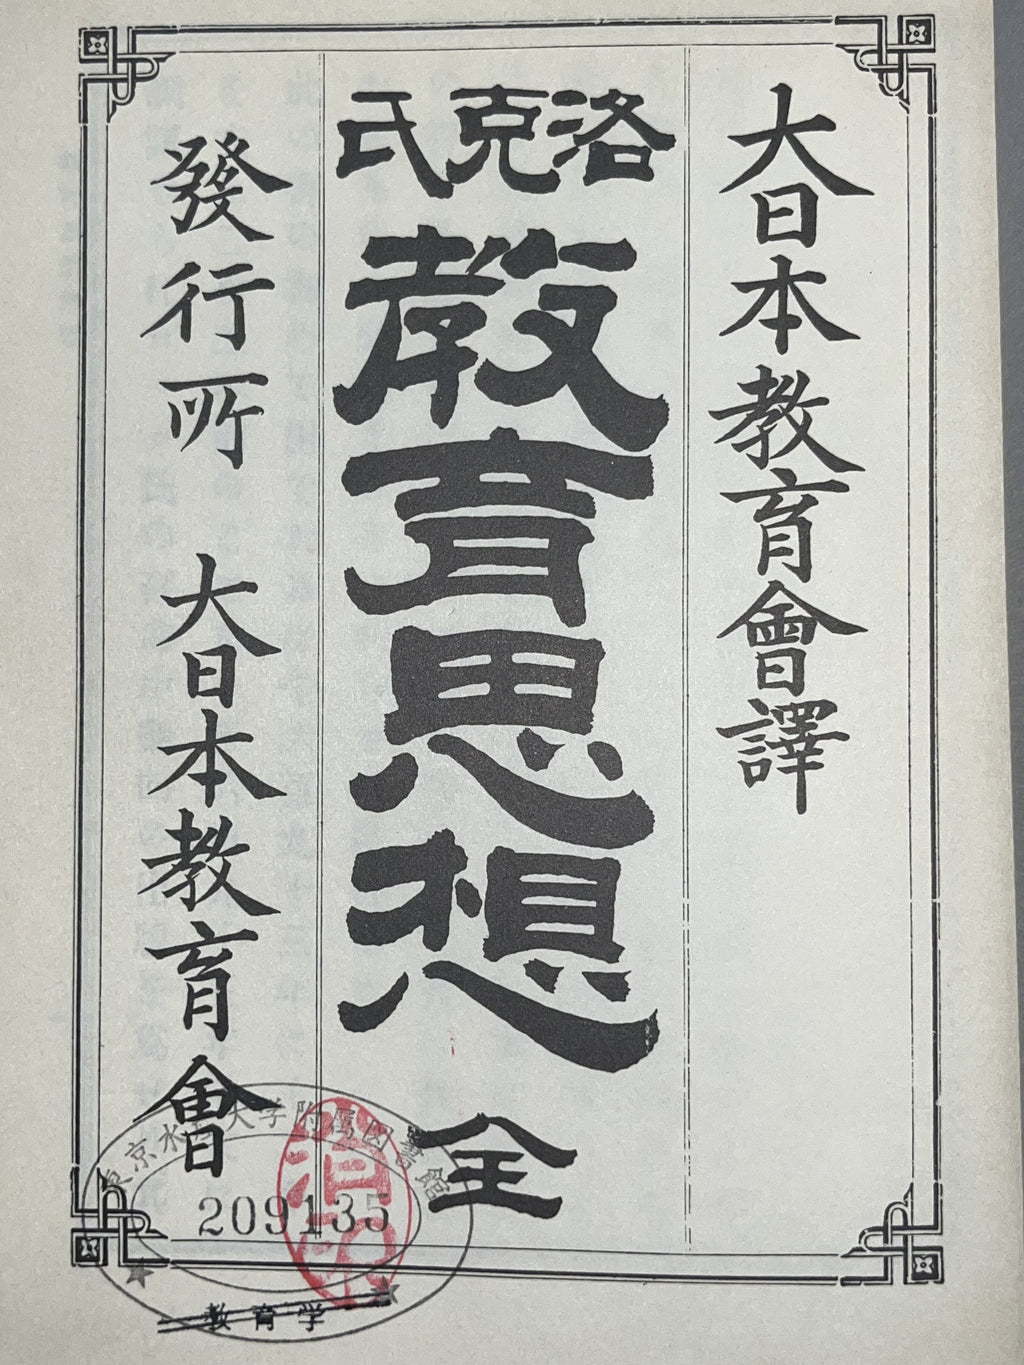 大日本教育會譯
洛克氏
教育思想
全
發行所 大日本教育會
東京水産大学附属図書館
209135
消印
教育学